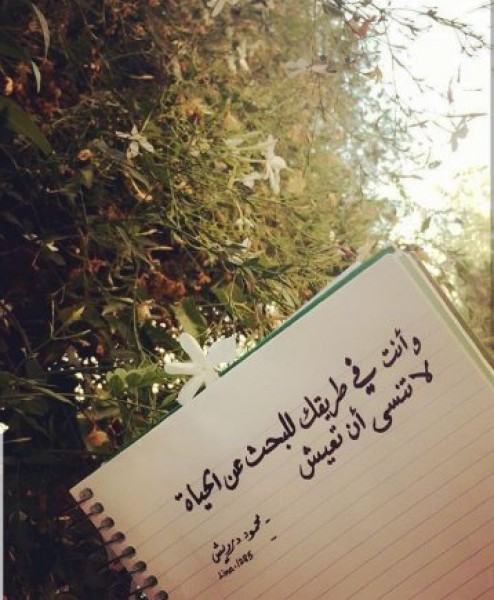 وأنت في طريقك للبحث عن الحياة
لا تنسى أن تعيش
- محمود درويش -